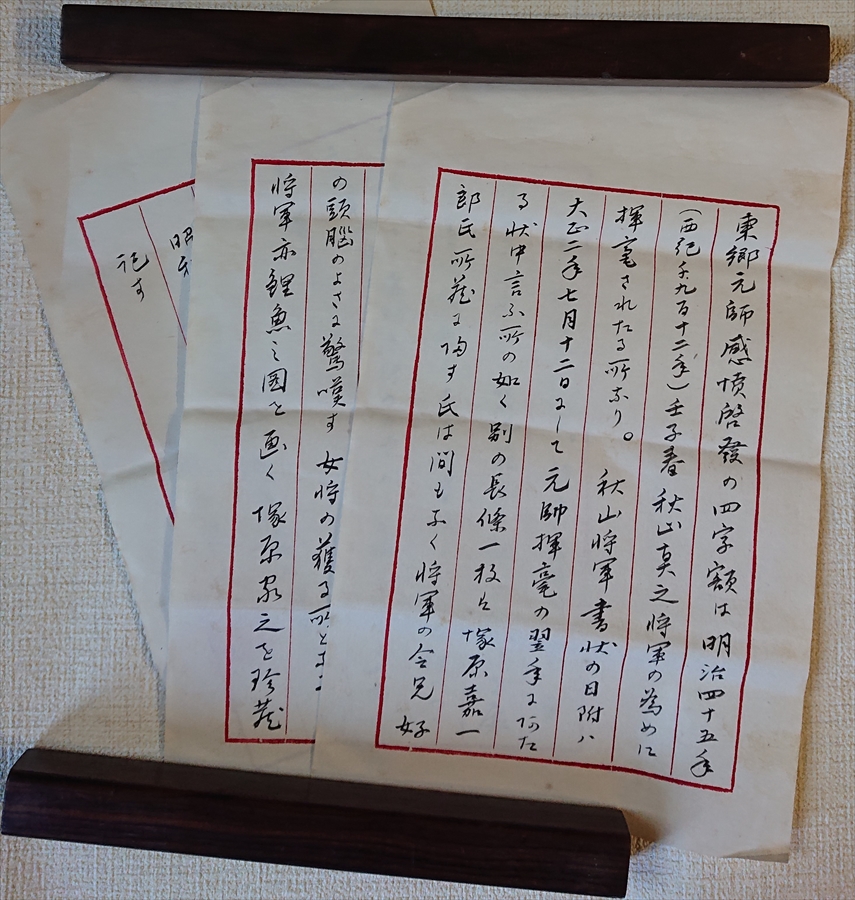 東郷元師感憤啓發の四字額は明治四十五年
(西紀千九百十二年)壬子春秋山真之将軍の為めに
揮毫されたる所なり。 秋山将軍書状の日附ハ
大正二年七月十二日にして元帥揮毫の翌年にあた
る状中言ふ所の如く別の長條一枚は塚原嘉一
郎氏所蔵に帰す氏は間もなく将軍の令兄好
の頭腦のよさに驚嘆す女将の獲る所となる
将軍亦鯉魚之圖を画く塚原家之を珍蔵
昭和
記す